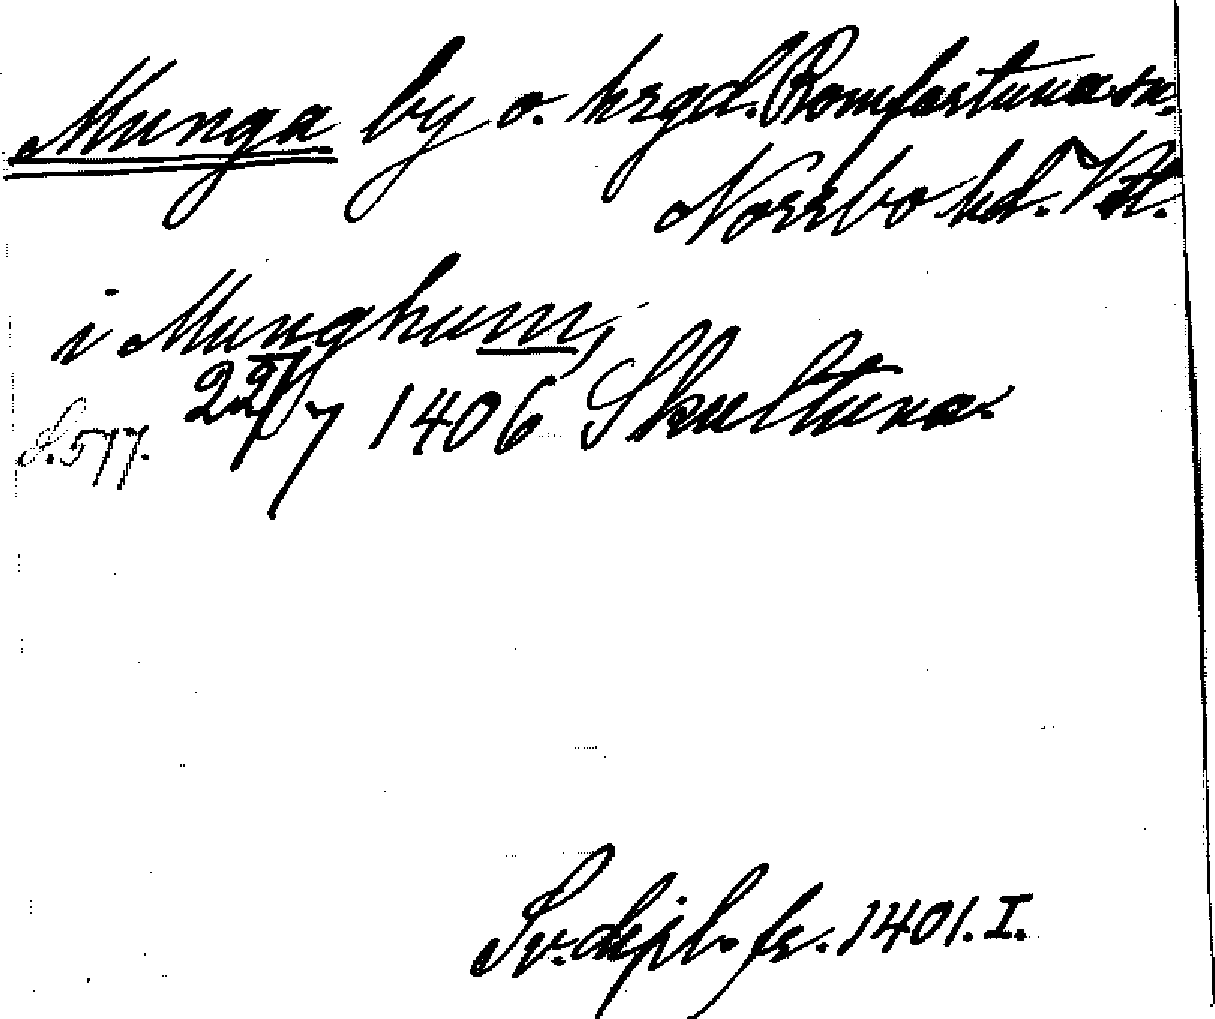 Munga by o. hrgd. Romfartuna sn.
Norrbo hd. Vstl.
i Munghum,
22/7 1406 Skultuna.
S. 577.
Sv. dipl. fr. 1401. I.